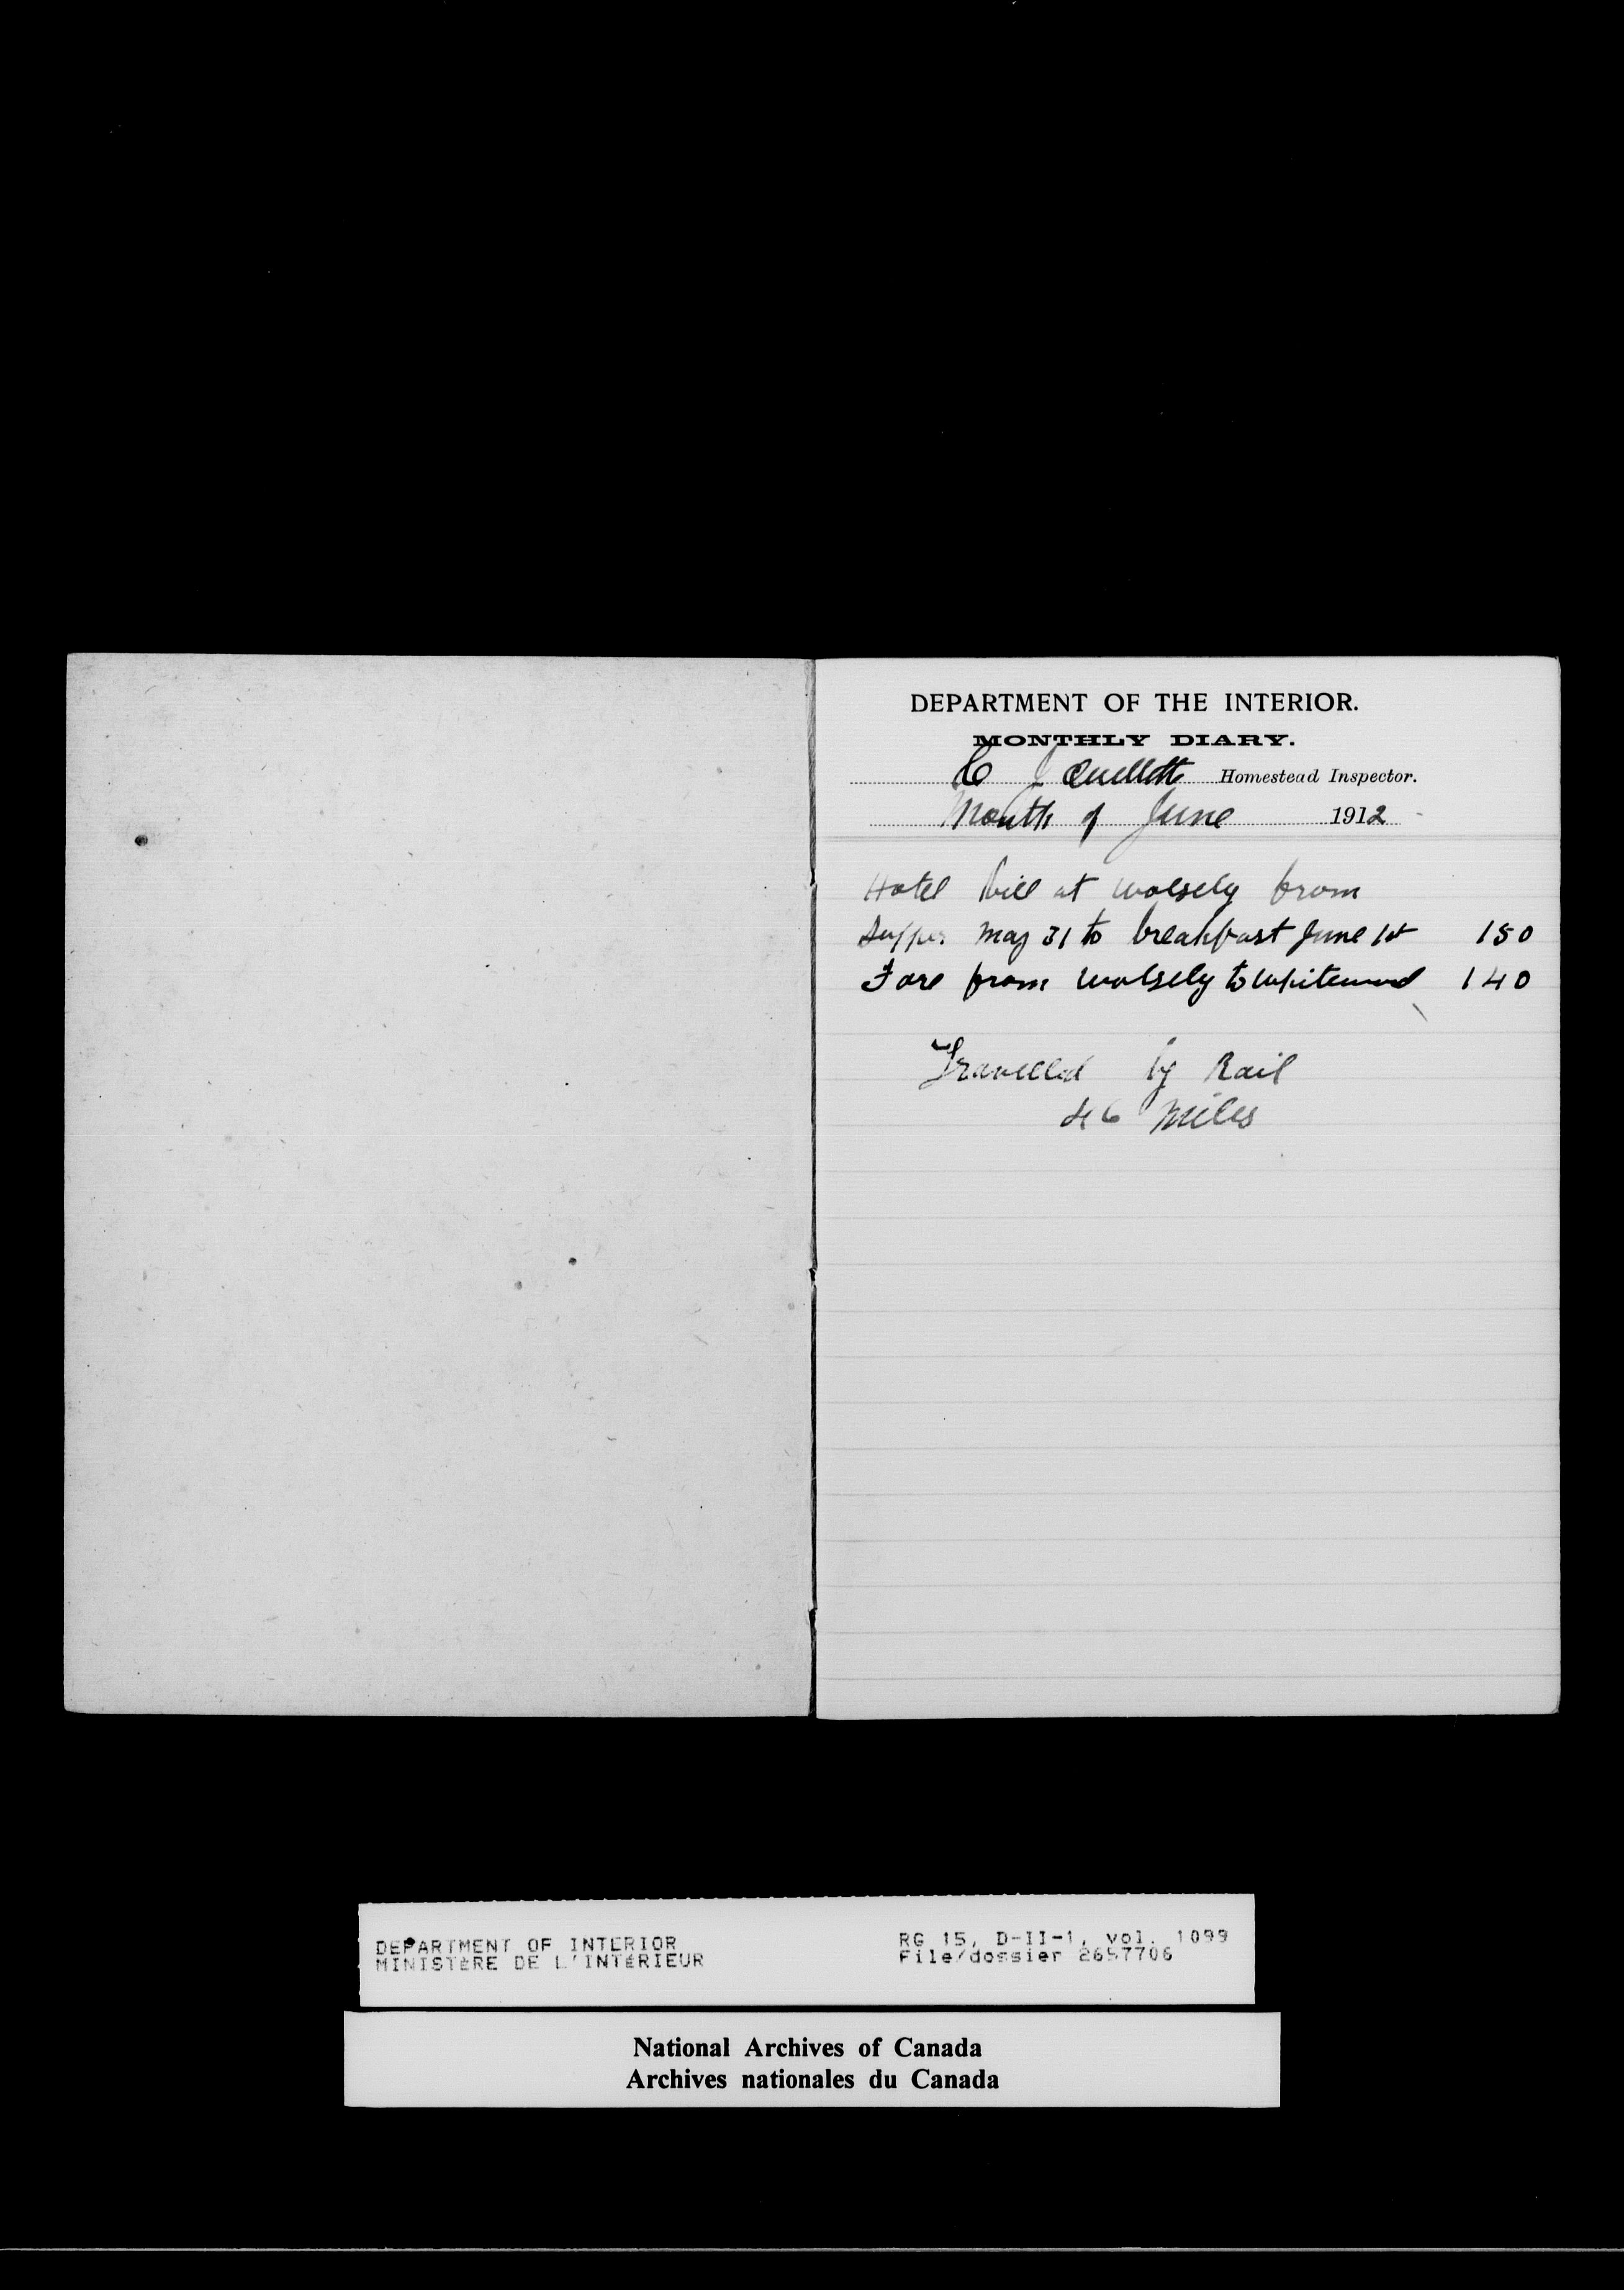 DEPARTMENT OF THE INTERIOR.
MONTHLY DIARY.
C J Ouellette Homestead Inspector.
Month of June 1912
Hotel bill at Wolsely from
Supper May 31 to breakfast June 1st 150
Fare from Wolsely to Whitewood 140
Travelled by Rail
46 Miles
DEPARTMENT OF INTERIOR
MINISTÈRE DE L'INTÉRIEUR
RG 15, D-II-1, vol. 1099
File/dossier 2657706
National Archives of Canada
Archives nationales du Canada